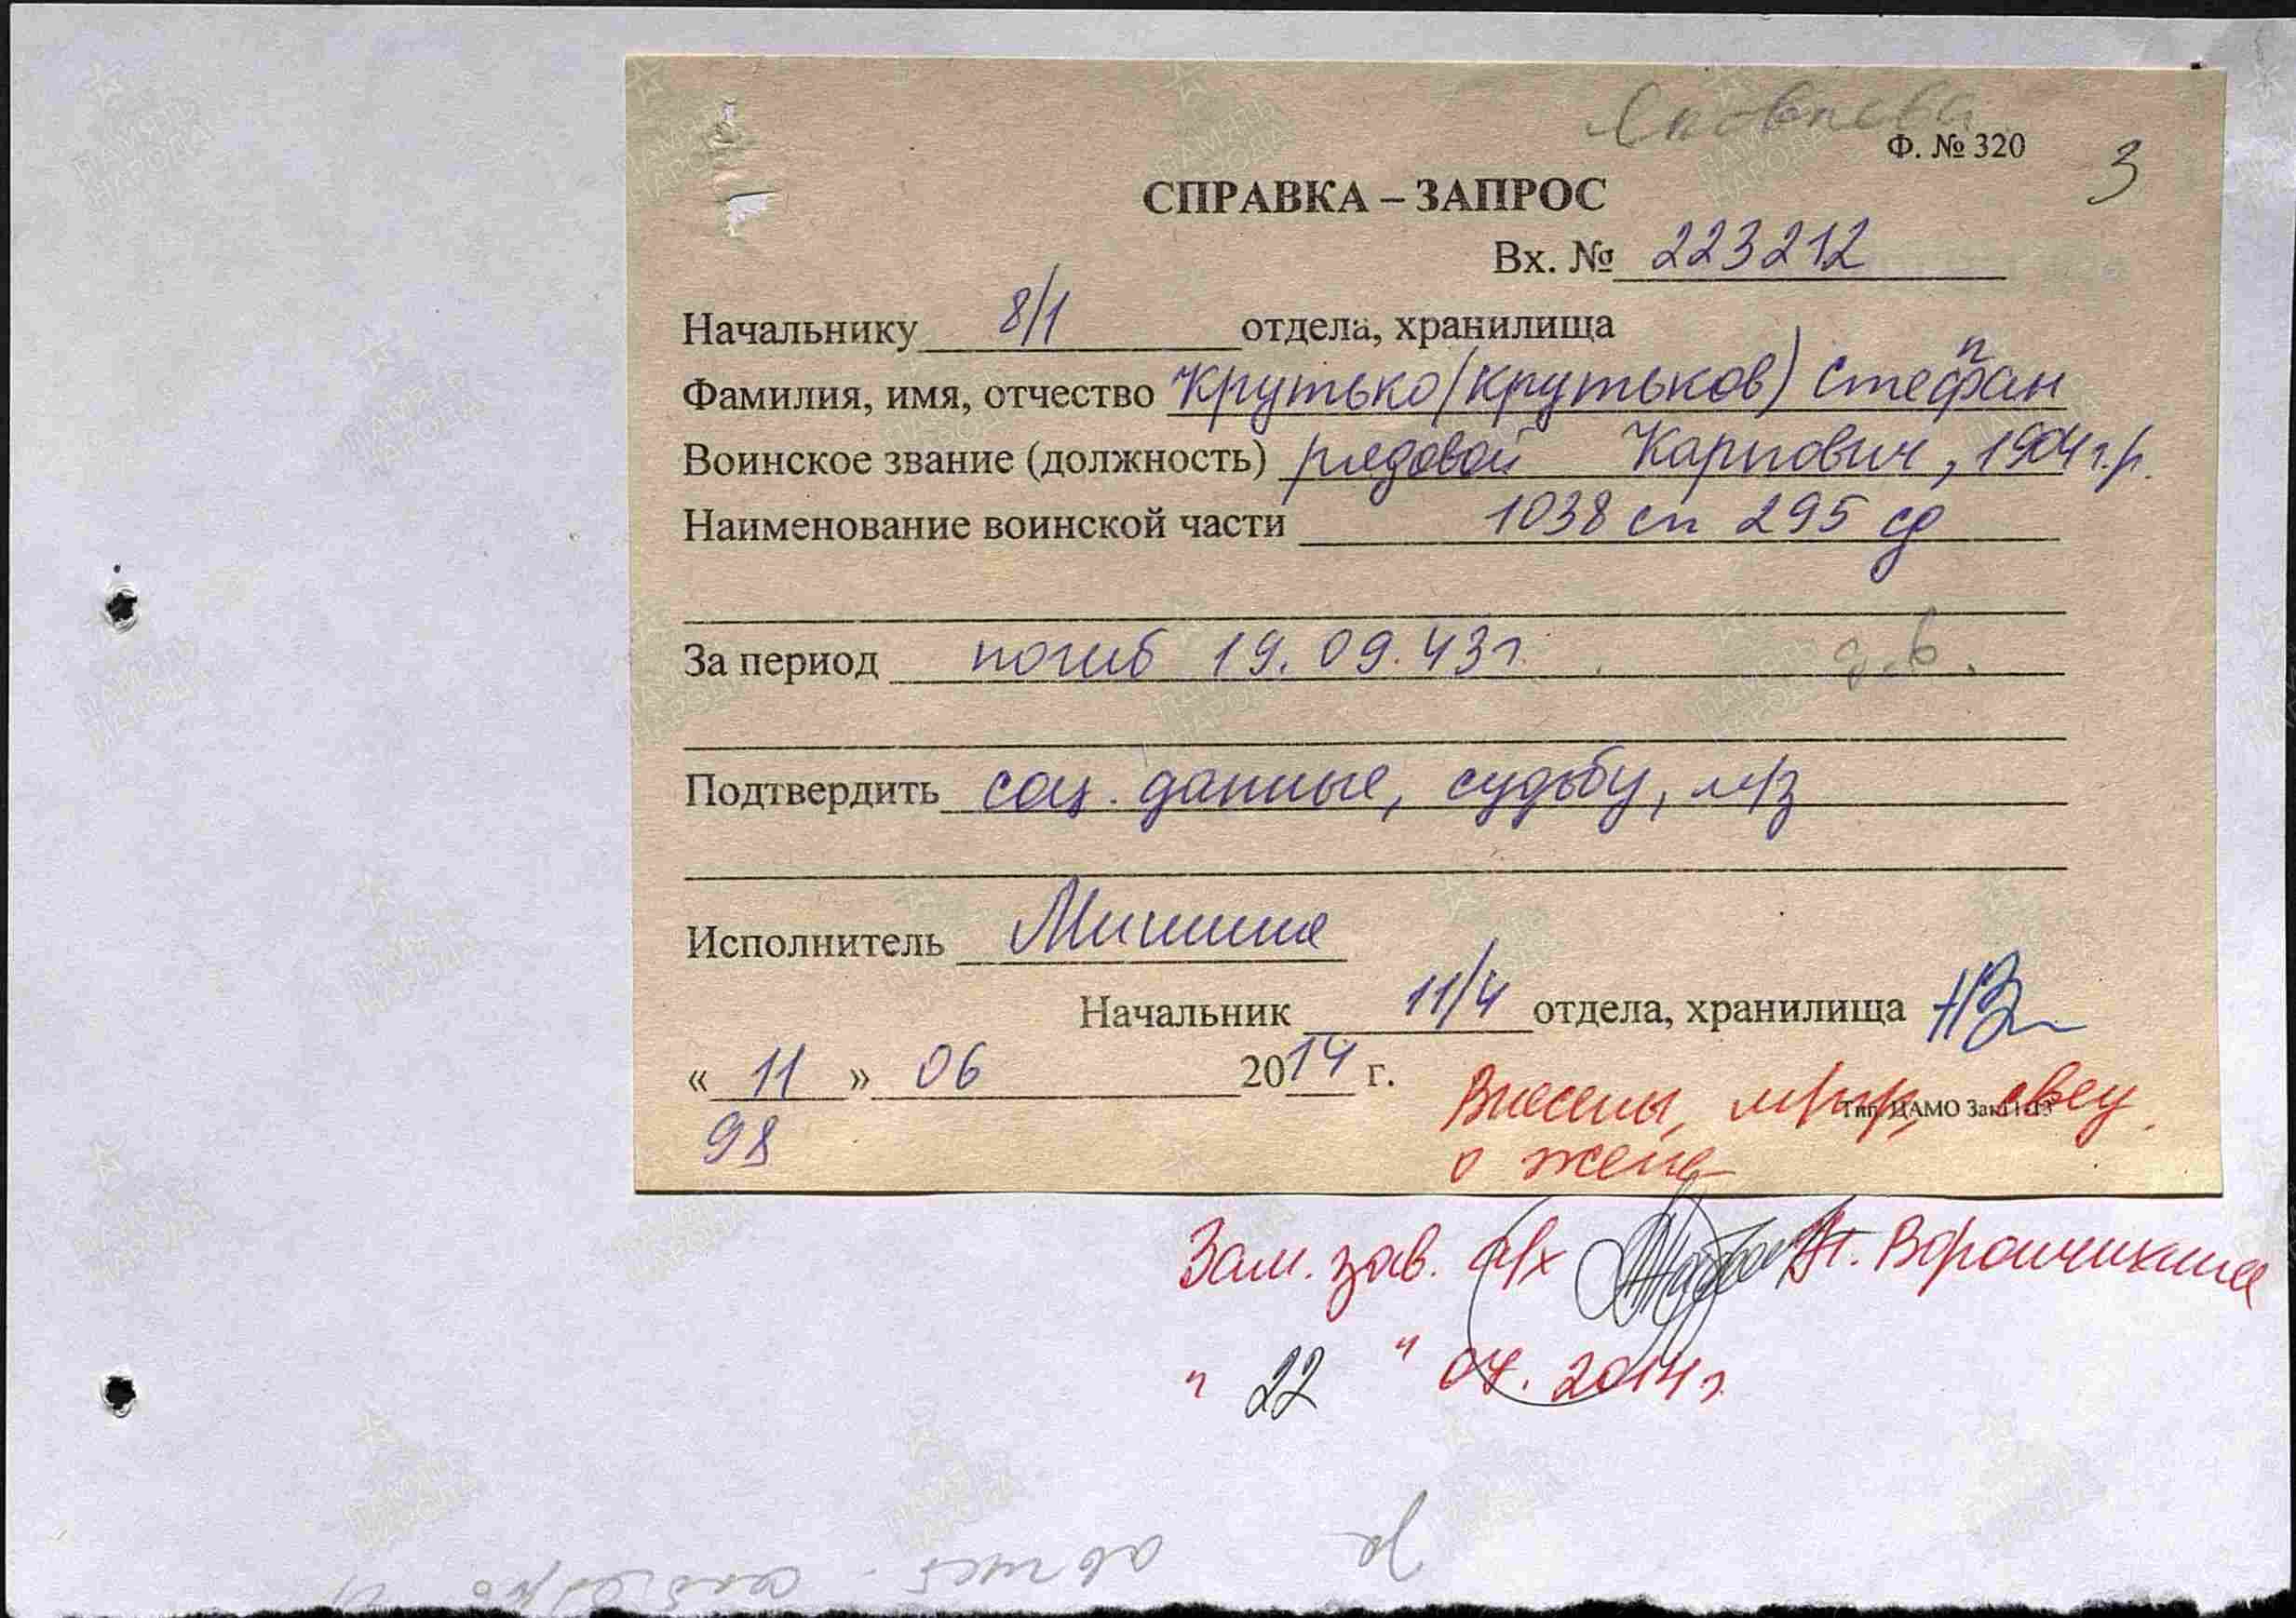 Яковлева
Ф. № 320
3
СПРАВКА – ЗАПРОС
Вх. № 223212
Начальнику 8/1 отдела, хранилища
п
Фамилия, имя, отчество Крутько/(Крутьков) Стефан
Воинское звание (должность) рядовой Карпович, 1904 г.р.
Наименование воинской части 1038 сп 295 сд
За период погиб 19.09.43г. д.в.
Подтвердить соц. данные, судьбу, м/з
Исполнитель Мишина
Начальник 11/4 отдела, хранилища
« 11 » 06 2014 г.
Тип. ЦАМО Зак
98
Внесены, м/пр, свед.
о жене
Зам. зав. а/х Н. Ворончихина
" 22 " 07. 2014г